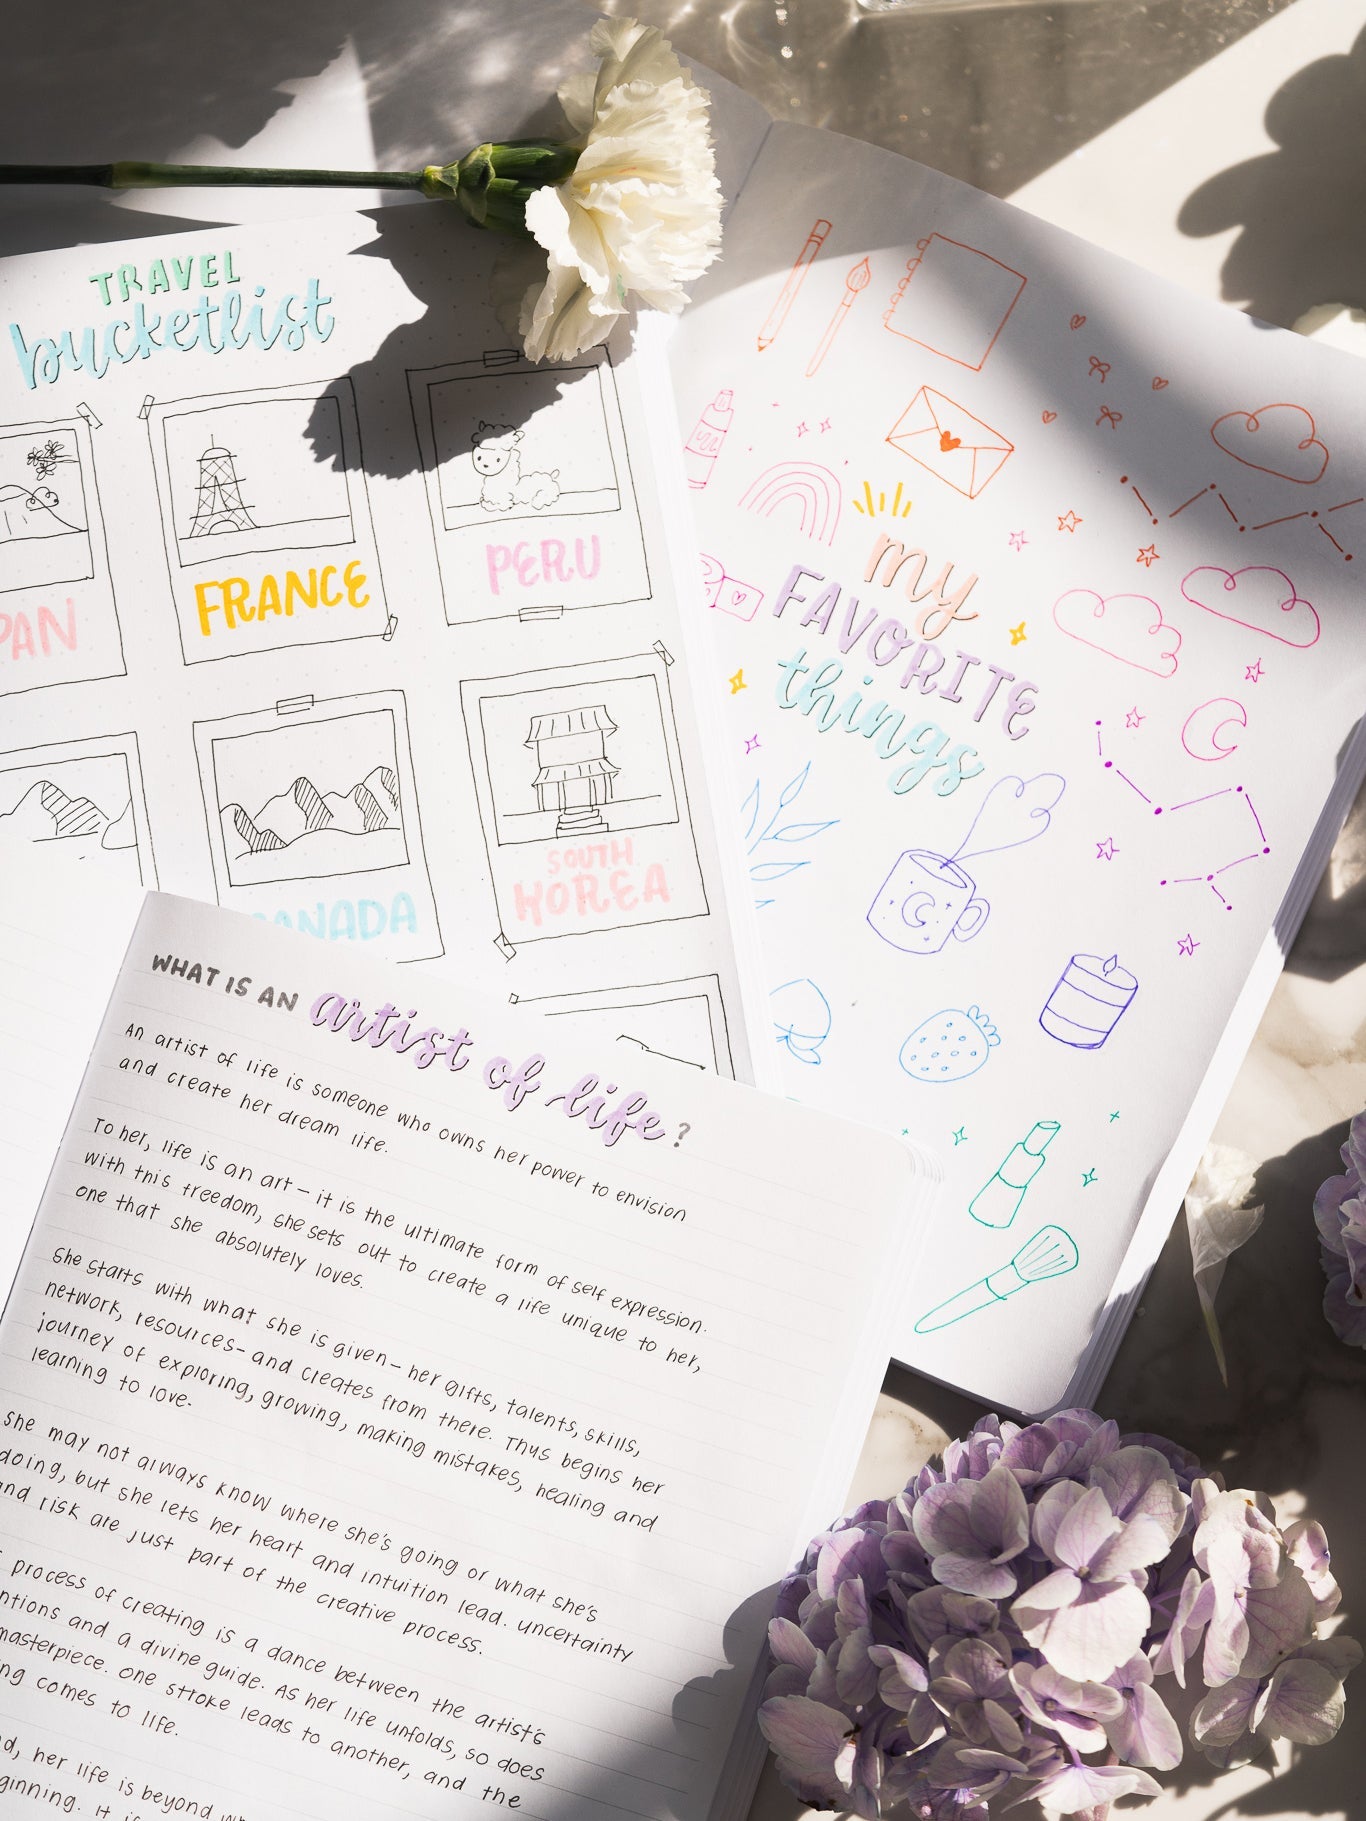 TRAVEL
bucketlist
FRANCE
PERU
CANADA
SOUTH
KOREA
my
FAVORITE
things
WHAT IS AN artist of life?
An artist of life is someone who owns her power to envision
and create her dream life.
To her, life is an art – it is the ultimate form of self expression.
with this freedom, she sets out to create a life unique to her,
one that she absolutely loves.
She starts with what she is given – her gifts, talents, skills,
network, resources – and creates from there. Thus begins her
journey of exploring, growing, making mistakes, healing and
learning to love.
She may not always know where she's going or what she's
doing, but she lets her heart and intuition lead. uncertainty
and risk are just part of the creative process.
process of creating is a dance between the artist's
and a divine guide. As her life unfolds, so does
masterpiece. One stroke leads to another, and the
comes to life.
her life is beyond